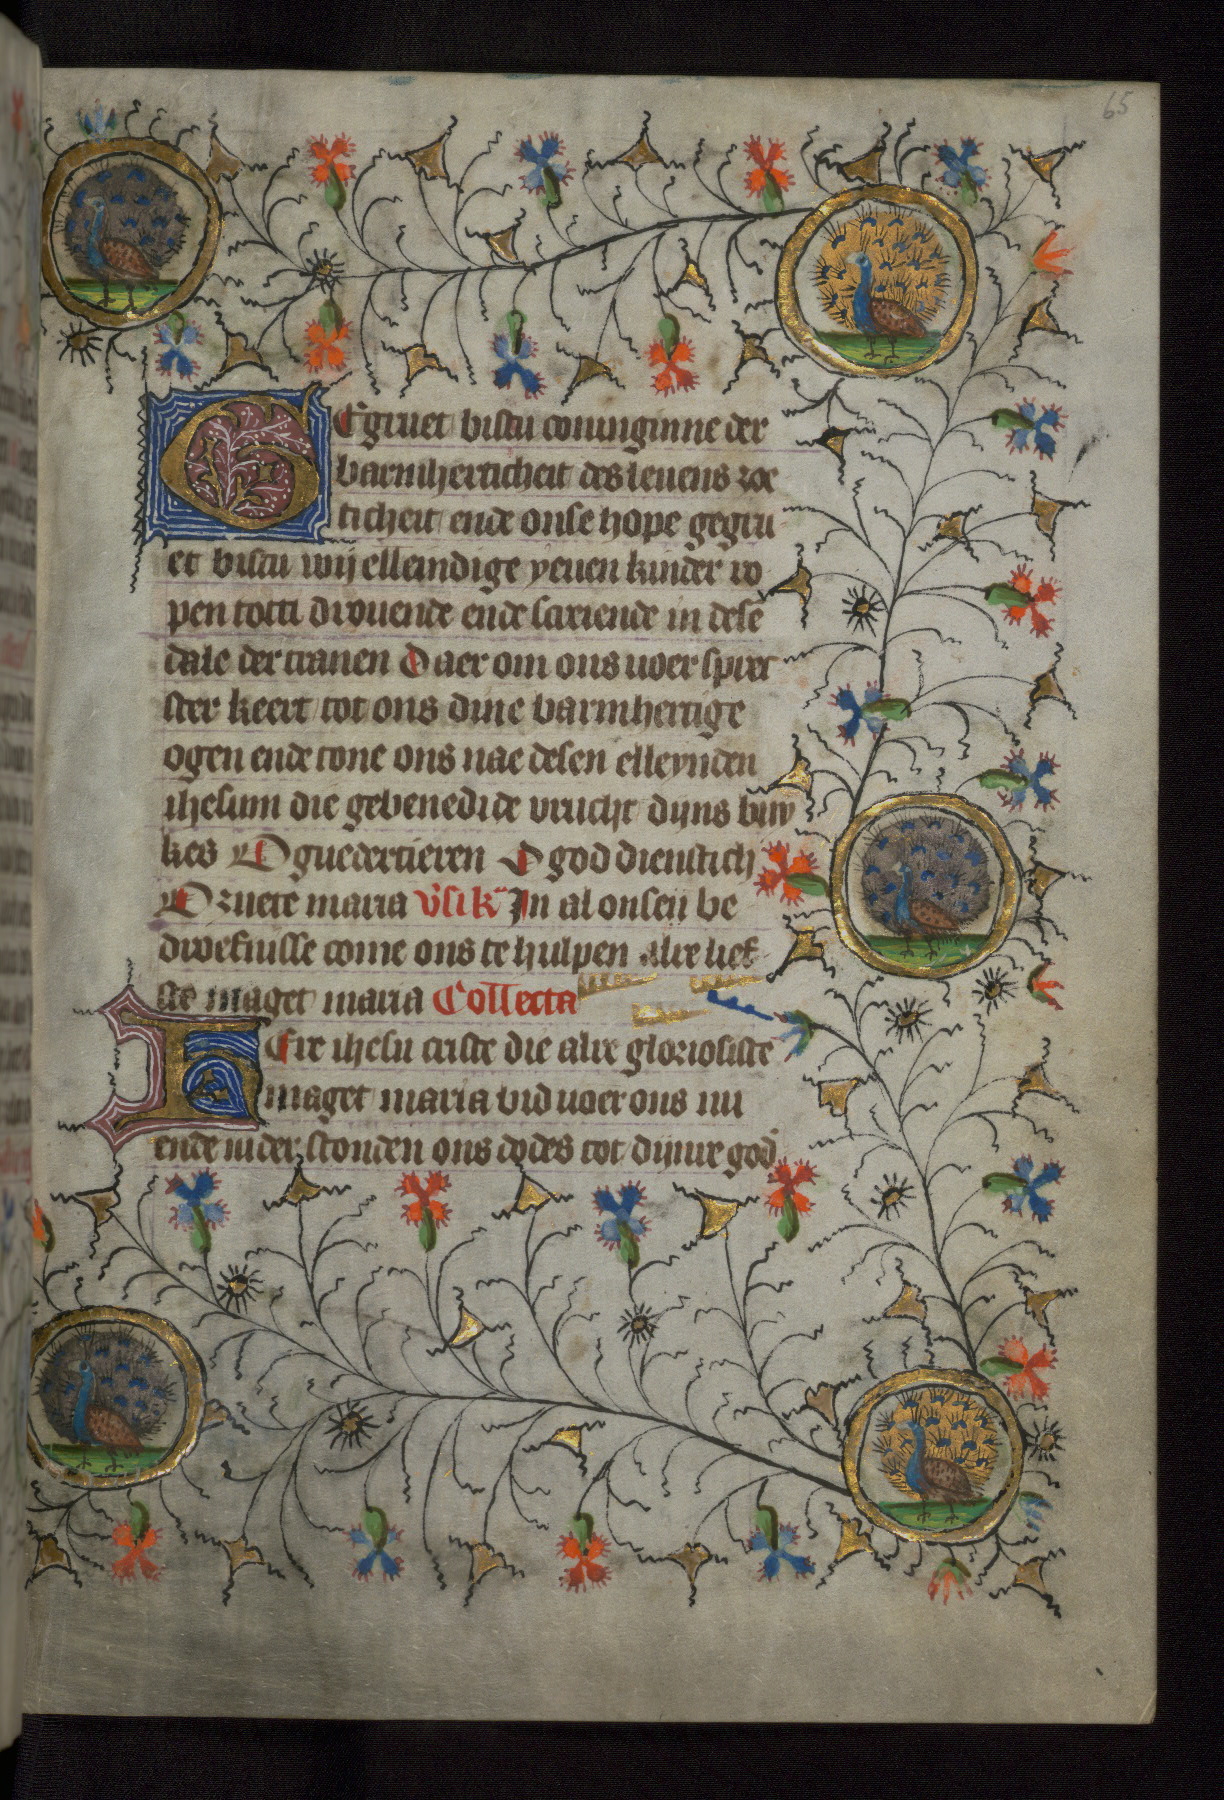 65
GEgruet bistu coninginne der
barmherticheit des leuens zoe
ticheit ende onse hope gegru
et bistu wij elleindige yeuen kinder ro
pen totti drouende ende scriende in dese
dale der tranen Daer om ons voer spreec
ster keert tot ons dine barmhertige
ogen ende tone ons nae desen elleynden
ihesum die gebenedide vrucht dijns buy
kes O guedertieren O god dienstich
O zuete maria In al onsen be
droefnisse come ons te hulpen alre lief
ste maget maria Collecta
HEre ihesu criste die alre glorioliste
maget maria bid voer ons nu
ende in der stonden ons dodes tot dijnre god